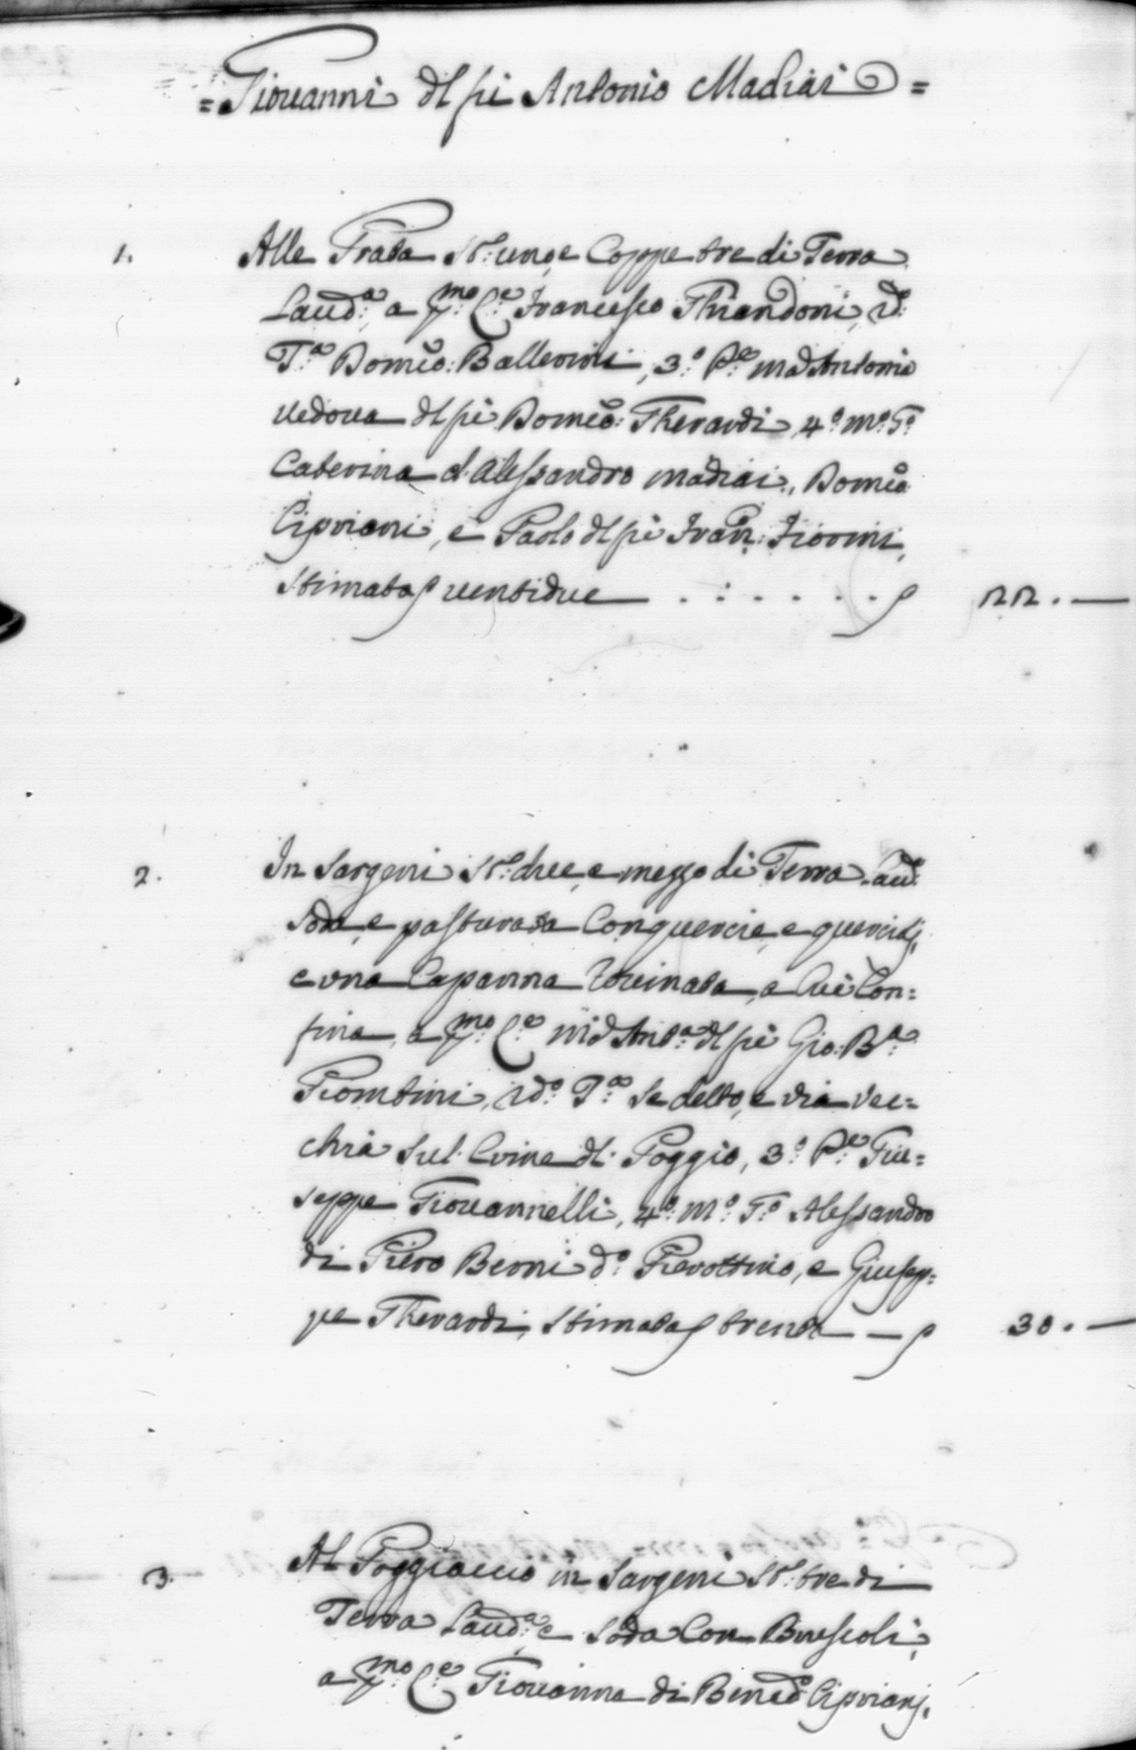 = Giovanni dl pī Antonio Madiai =
1. Alle Prata St: uno, e Coppe tre di Terra
Laud.ª, a p.mo C.e Francesco Ghiandoni, 2do
T.ª Domco: Ballerini, 3.º P.e Mad Antonia
vedova dl pī Domco: Gherardi, 4.º M.º T.º
Caterina d. Alessandro Madiai, Domco
Cipriani, e Paolo dl pī Fran: Fiorini,
Stimata ʃ ventidue — . : . . . . ʃ 22. —
2. In Sargeni St: due, e mezzo di Terra Laud:
Soda, e pasturata Con quercie, e quercioli,
e una Capanna Rovinata, a Cui Con=
fina, a p.mo C.e Mad Ant.ª dl pī Gio: B.ª
Piombini, 2do T.ª Se detto, e via vec=
chia sul Crine dl Poggio, 3.º P.e Giu=
seppe Giovannelli, 4.º M.º T.º Alessandro
di Piero Berni d.º Pierottino, e Giusep=
pe Gherardi, Stimata ʃ trenta — ʃ 30. —
3. Al Poggiaccio in Sargeni St: tre di
Terra Laud.ª, e Soda Con Bruscoli,
a p.mo C.e Giovanna di Bened: Cipriani,